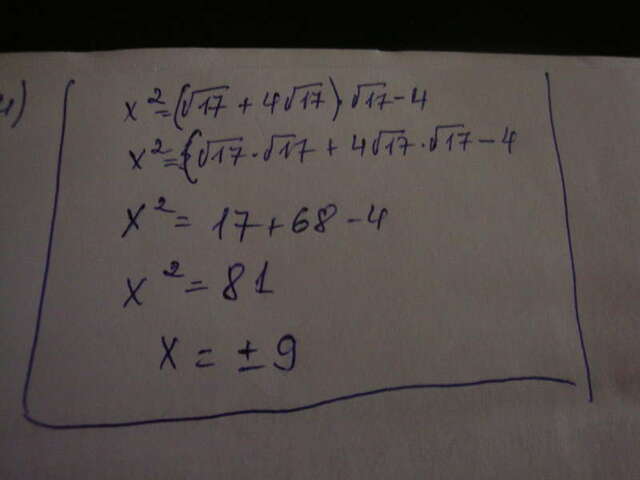 x² = (√17 + 4√17) · √17 - 4
x² = {√17 · √17 + 4√17 · √17 - 4
x² = 17 + 68 - 4
x² = 81
x = ± 9